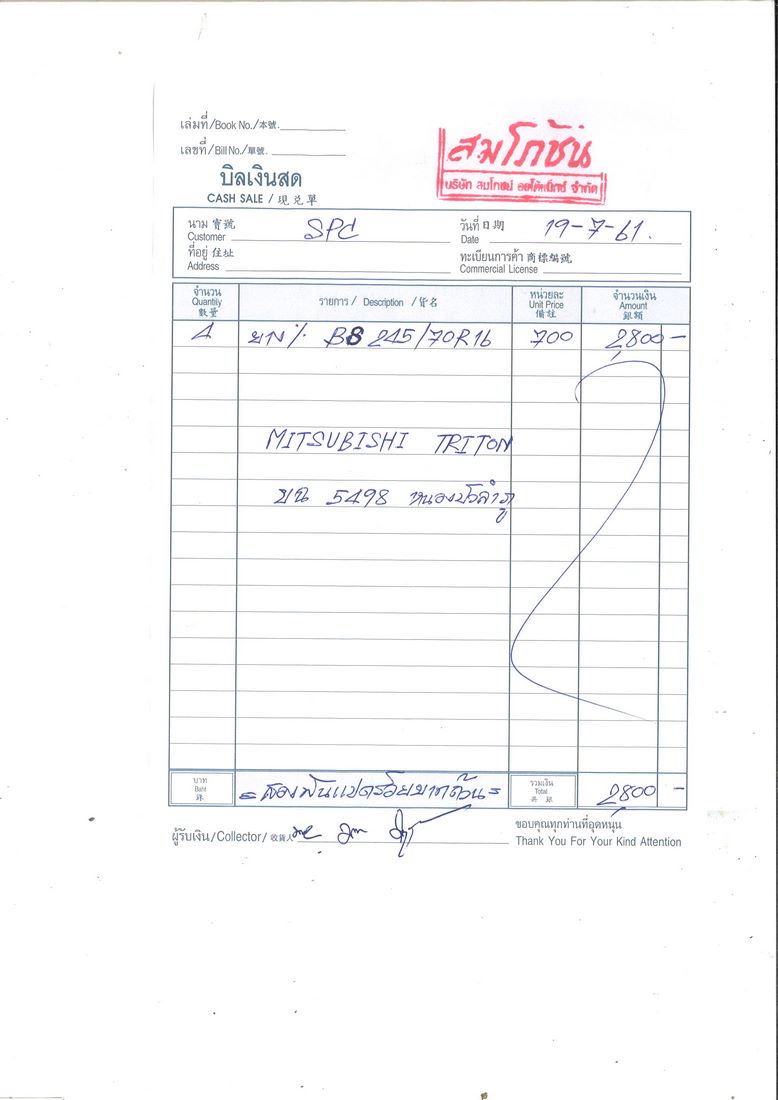 เล่มที่/Book No./本號.
เลขที่/Bill No./單號.
สมโภชน์
บริษัท สมโภชน์ ออโต้แม็กซ์ จำกัด
บิลเงินสด
CASH SALE / 現兌單
นาม 寶號 Customer SPC วันที่ 日期 Date 19-7-61.
ที่อยู่ 住址 Address ทะเบียนการค้า 商標編號 Commercial License
จำนวน Quantity 數量 รายการ / Description / 貨名 หน่วยละ Unit Price 備註 จำนวนเงิน Amount 銀額
4 ยาง % BS 245/70R16 700 2800 -
MITSUBISHI TRITON
บน 5498 หนองบัวลำภู
บาท Baht 銖 = สองพันแปดร้อยบาทถ้วน = รวมเงิน Total 共銀 2800 -
ผู้รับเงิน/Collector/收貨人 ขอบคุณทุกท่านที่อุดหนุน
Thank You For Your Kind Attention